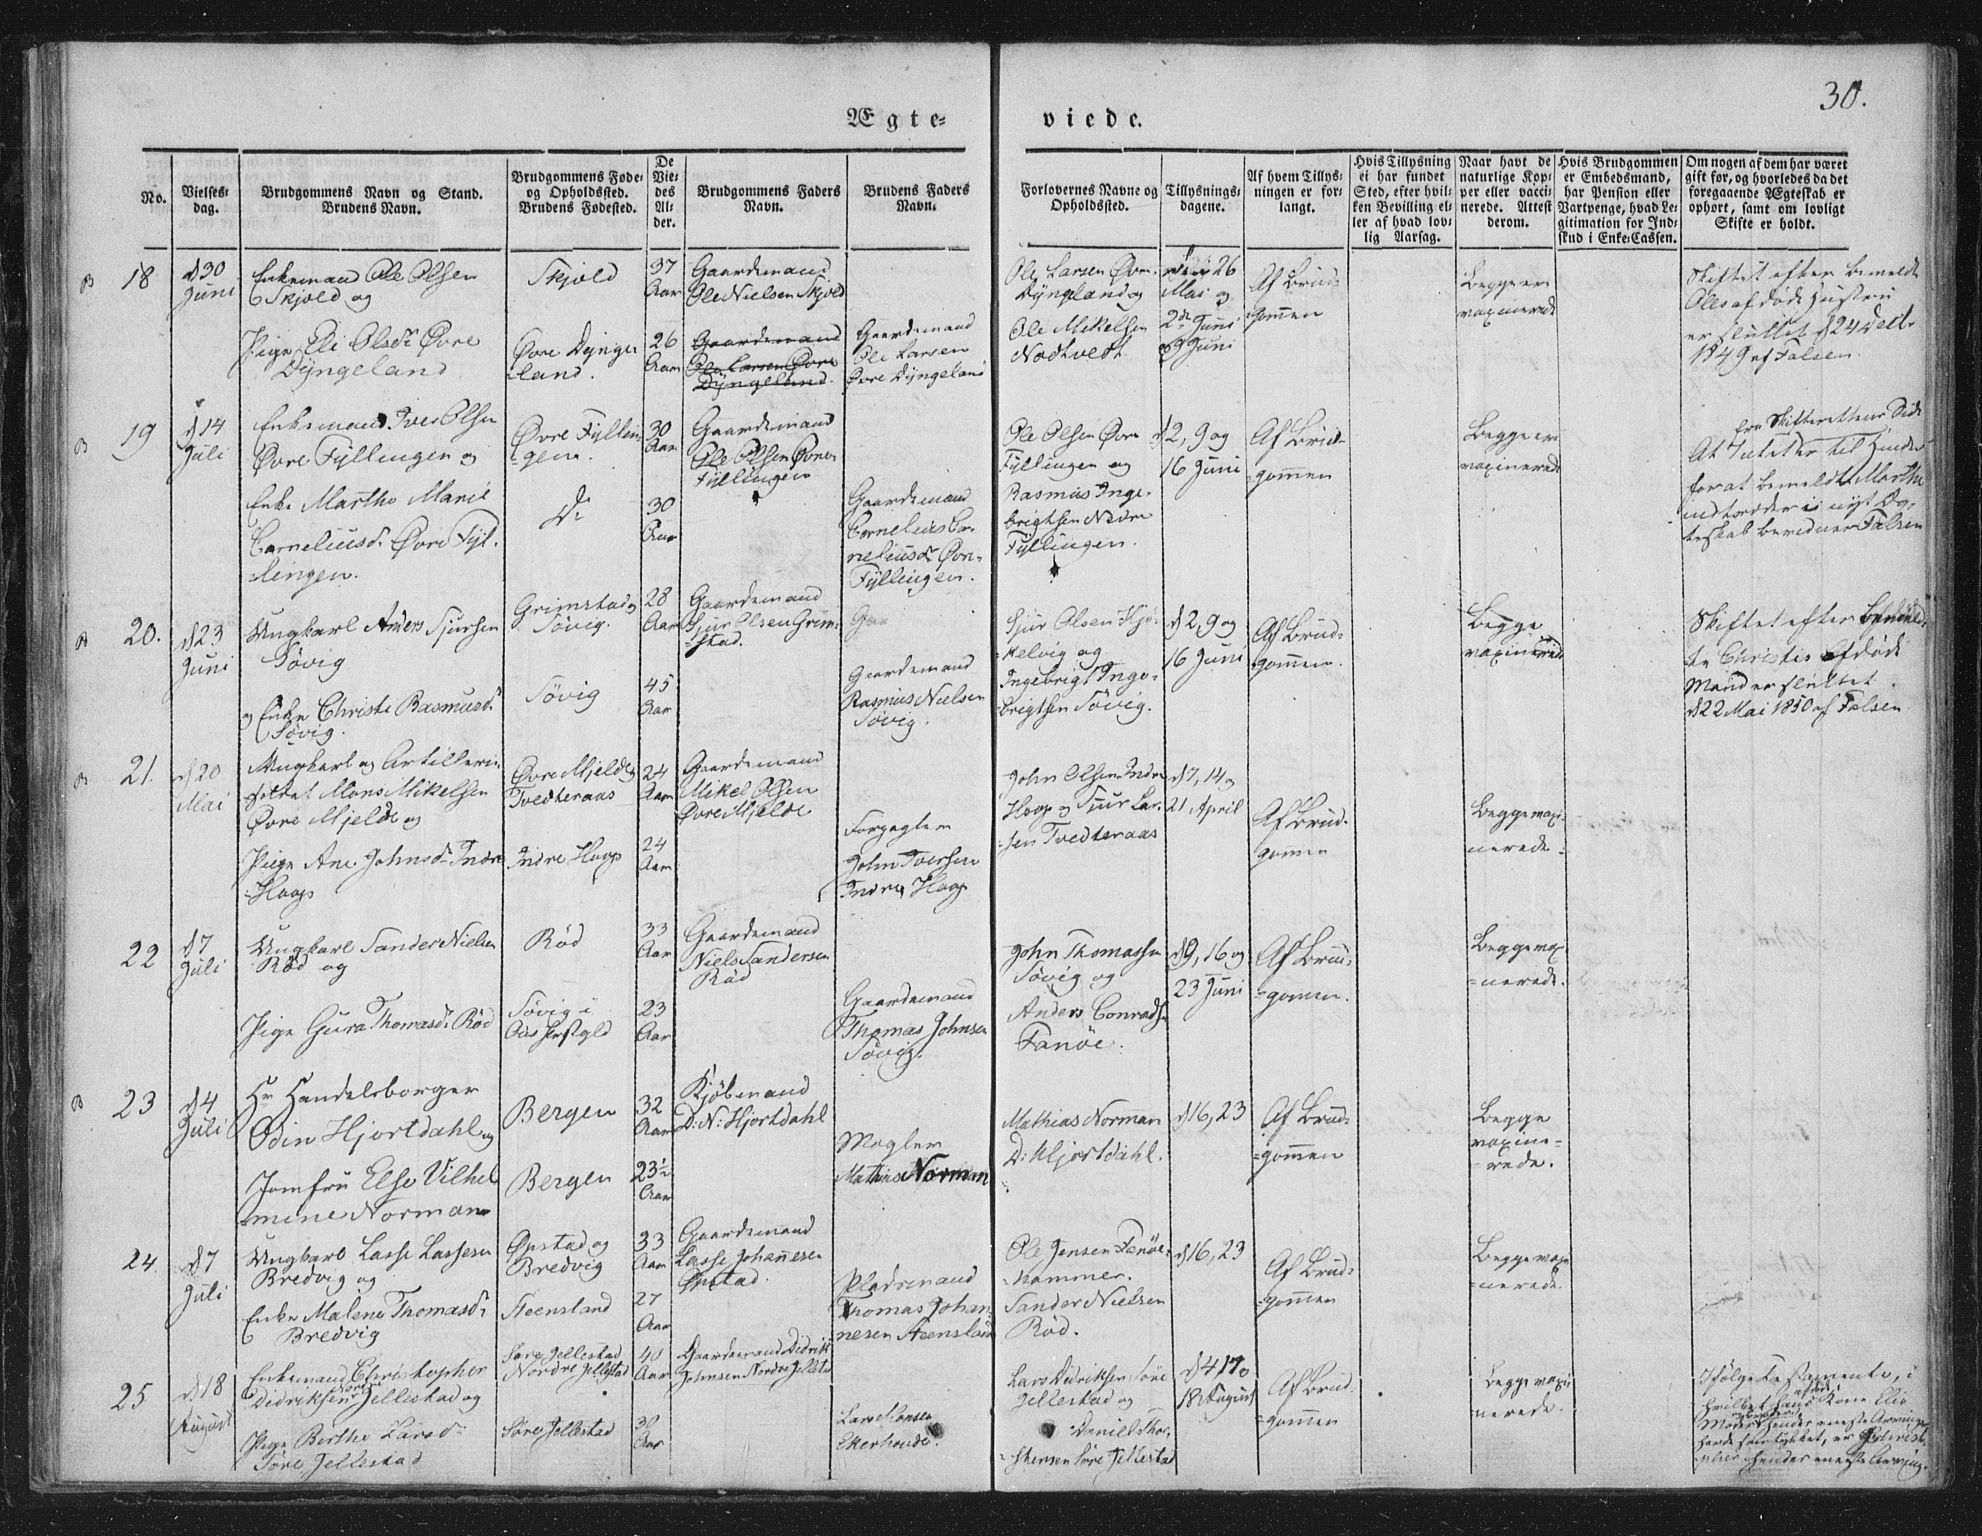 30.
Ægte=
viede.
No.
Vielses=
dag.
Brudgommens Navn og Stand.
Brudens Navn.
Brudgommens Føde=
og Opholdssted.
Brudens Fødested.
De
Vie=
des
Al=
der.
Brudgommens Faders
Navn.
Brudens Faders
Navn.
Forlovernes Navne og
Opholdssted.
Tillysnings=
dagene.
Af hvem Tillys=
ningen er for=
langt.
Hvis Tillysning
ei har fundet
Sted, efter hvil=
ken Bevilling el=
ler af hvad lov=
lig Aarsag.
Naar havt de
naturlige Kop=
per eller vacci=
nerede. Attest
derom.
Hvis Brudgommen
er Embedsmand,
har Pension eller
Vartpenge, hvad Le=
gitimation for Ind=
skud i Enke=Cassen.
Om nogen af dem har været
gift før, og hvorledes da det
foregaaende Ægteskab er
ophørt, samt om lovligt
Skifte er holdt.
B
18
d 30
Juni
Enkemand Ole Olsen
Skjold og
Pige Eli Olsd. Øvre
Dyngeland
Skjold
Øvre Dynge
-land.
37
Aar
26
Aar
Gaardemand
Ole Nielsen Skjold
Gaardemand
Ole Larsen Øvre
Dyngeland.
Gaardemand
Ole Larsen
Øvre Dyngeland
Ole Larsen Øvre
Dyngeland og
Ole Mikelsen
Nødtvedt
26
Mai og
2de Juni
9 Juni
Af Brud=
=gommen
Begge ere
vaxinerede
Skiftet efter bemeldte
Oles afdøde Hustru
er sluttet d 24
1849 af Falsen.
B
19
d 14
Juli
Enkemand Iver Olsen
Øvre Fyllingen og
Enke Marthe Marie
Corneliusd. Øvre Fyl-
-lingen.
Øvre Fyllin
-gen.
Do
30
Aar
30
Aar
Gaardemand
Ole Olsen Øvre
Fyllingen
Gaardemand
Cornelius Cor
neliusd. Øvre
Fyllingen.
Ole Olsen Øvre
Fyllingen og
Rasmus Inge-
brigtsen Nedre
Fyllingen.
d 2, 9 og
16 Juni
Af Brud=
-gommen
Begge ere
vaxinerede
fra Skifterettens Side
At Intet er til Hinder
for at bemeldte Marthe
indtræder i nyt Æg-
teskab bevidner Falsen
B
20.
d 23
Juni
Ungkarl Anders Sjursen
Søvig
og Enke Christi Rasmusd.
Søvig.
Grimstad og
Søvig.
Søvig
28
Aar
45
Aar
Gaardemand
Sjur Olsen Grim-
-stad.
Gaa
Gaardemand
Rasmus Nielsen
Søvig.
Sjur Olsen Hjø-
-kelvig og
Ingebrigt Inge-
-brigtsen Søvig.
d 2, 9 og
16 Juni
Af Brud=
-gommen.
Begge
vaxinerede
Skiftet efter bemeld-
te Christis afdøde
Mand er sluttet
d 22 Mai 1850 af Falsen.
B
21.
d 20
Mai
Ungkarl og Artilleri
soldat Mons Mikelsen
Øvre Mjelde og
Pige Ane Johnsd. Indre
Hoop
Øvre Mjelde og
Tvedteraas
Indre Hoop
24
Aar
24
Aar
Gaardemand
Mikel Olsen
Øvre Mjelde
Forpagter
John Iversen
Indre Hoop
John Olsen Indre
Hoop og Sjur Lar-
-sen Tvedteraas
d 7, 14 og
21 April
Af Brud-
gommen
Begge vaxi-
nerede.
22
d 7
Juli
Ungkarl Sander Nielsen
Rød og
Pige Gura Thomasd. Rød
Rød
Søvig i
33
Aar
23
Aar
Gaardemand
Niels Sandersen
Rød
Gaardemand
Thomas Johnsen
Søvig.
John Thomassen
Søvig og
Anders Conradsen
Fanöe.
d 9, 16 og
23 Juni
Af Brud=
=gommen.
Begge vaxi
=nerede.
B
23
d 4
Juli
Hr Handelsborger
Odin Hjortdahl og
Jomfru Else Vilhel
=mine Norman
Bergen
Bergen
32
Aar
23½
Aar
Kjøbmand
D: N: Hjortdahl
Mægler
Mathias Norman
Mathias Norman
D: Hjortdahl.
d 16, 23
Af Brud=
=gommen
Begge
vaxine=
=rede.
24.
d 7
Juli
Ungkarl Lasse Lassesen
Bredvig og
Enke Malene Thomasd.
Bredvig
Øpstad og
Bredvig
Steensland
33
Aar
27
Aar
Gaardemand
Lasse Johannesen
Øpstad.
Pladsemand
Thomas Johan
nesen Steensland
Ole Jensen Fanöe-
-hammer.
Sander Nielsen
Rød.
d 16, 23
Af Brud=
=gommen
Begge vaxi
=nerede.
25
d 18
August
Enkemand Christopher
Didriksen Nordre Jellestad og
Pige Berthe Larsd.
Søre Jellestad
Søre Jellestad
Nordre Jellestad
Søre Jellestad
40
Aar
30
Aar
Gaardemand Didrik
Johnsen Nordre Jellestad
Lars Monsen
Ekerhovde.
Lars Didriksen Søre
Jellestad og
Daniel Thor-
stensen Søre Jellestad
d 4 17 og
18 August
Af Brud-
gommen
Begge vaxi
nerede.
Ifølge Testamente, i
hvilket hans afdøde Kone Elis
Moder hendes eneste Arving
havde samtykket, er Christ
opher hendes eneste Arving.